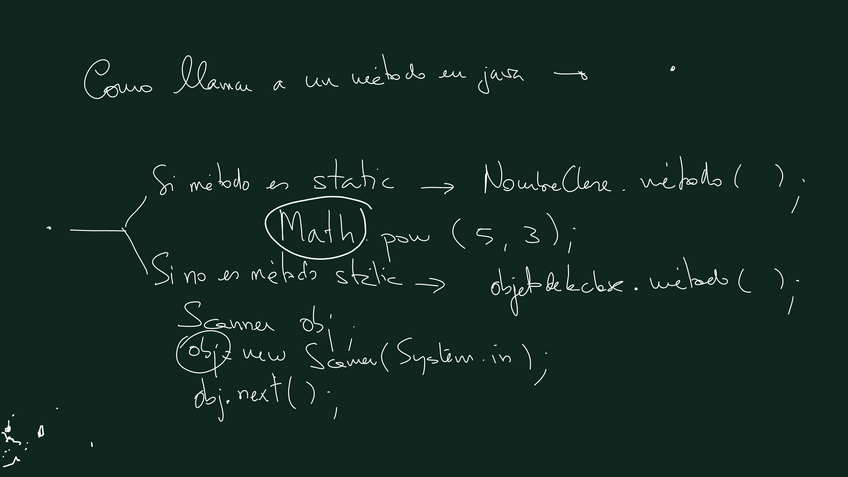 Como llamar a un método en java →
Si método es static → NombreClase. método ( );
Math. pow (5, 3);
Si no es método static → objetodelaclase. método ( );
Scanner obj;
obj = new Scanner(System.in);
obj.next();